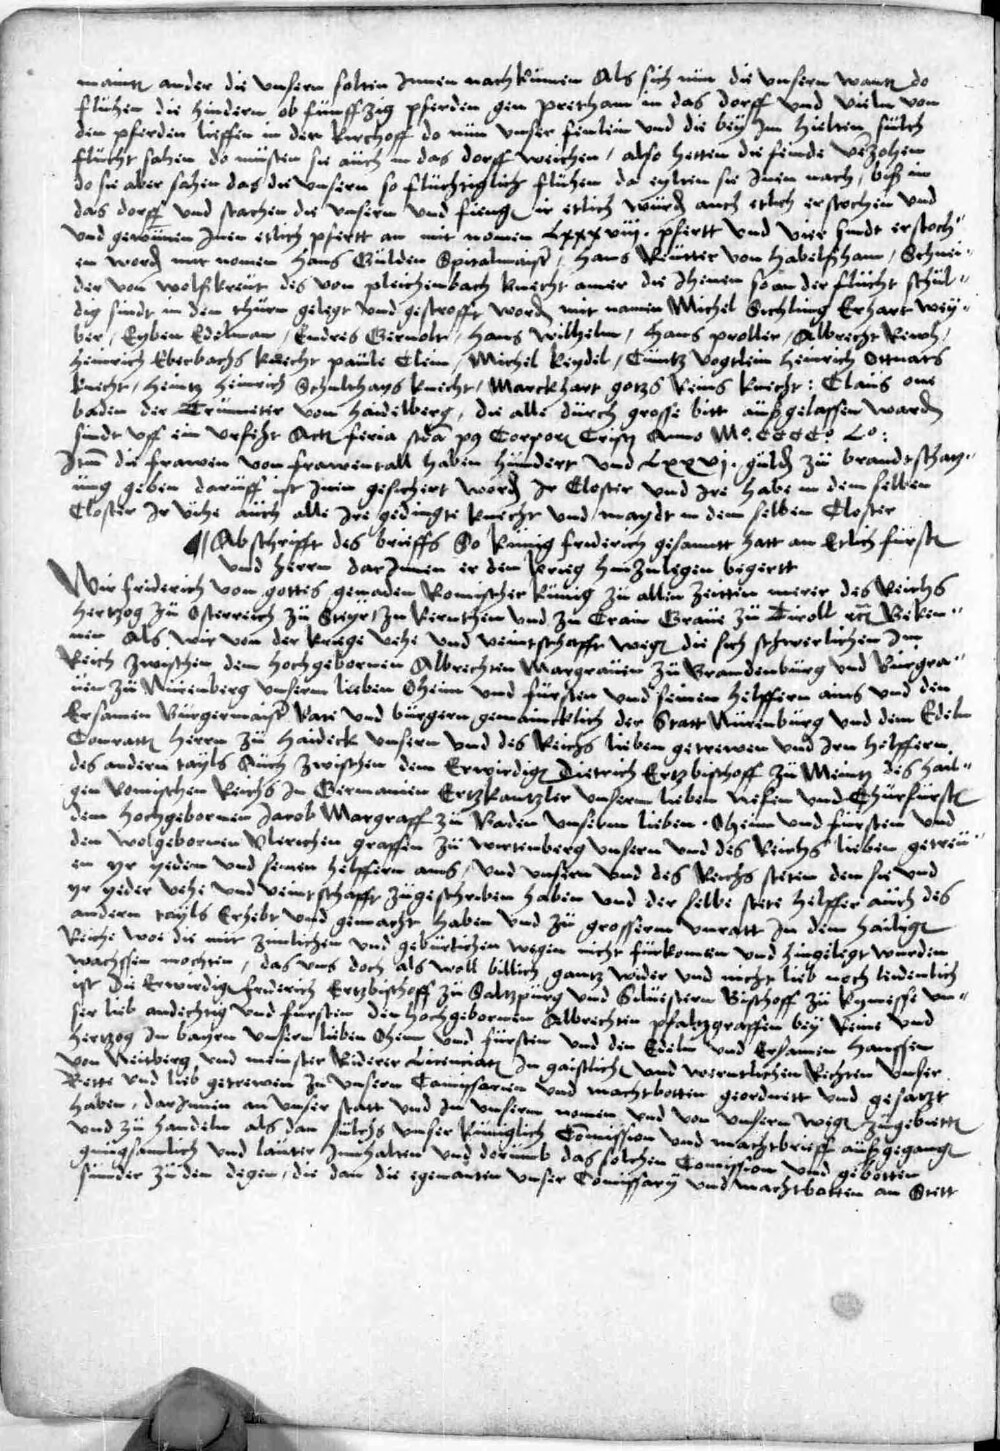 maintt ander die unsern solten Jnnen nachkumen Als sich nun die unsern wantt do
fluhen die hindern ob funffzig pferden gen pretham in das dorff und vieln von
den pferden lieffen in den kirchoff do nun unser fenlein und die bey Jm hielten sulch
flucht sahen do musten sie auch in das dorff weichen / also hetten die feinde
do sie aber sahen das die unsern so fluchtiglich fluhen do eylten sie Jnen nach / biß in
das dorff und stachen die unsern und fieng ir etlich wurd auch etlich erstochen und
und gewunnen Jnen etlich pfertt an mit nomen Lxxxviij. pfertt und vier sindt erstoch"
en word mit nomen Hans Gulden Spitalmaist / Hans Reutter von Habelßham / Schnei"
der von wolffskreut des von pleichenbach knecht aner die Jhenen so an der flucht schul"
dig sindt in den thurn gelegt und gestrofft word mit namen Michel Sechling Erhart wey"
ber / Eyben Edelman / Endres Gernolt / Hans wilhelm / Hans proller / Albrecht Reich /
Heinrich Eberbachs knecht paule Clein / Michel keydel / Cuntz Vogtlein Heinrich Ottnats
knecht / Heintz Heinrich Schulthays knecht / Marckhart gotzs Reins knecht : Claus one
baden der Trumeter von Haidelberg / die alle durch grosse bitt außgelassen ward
sindt uff ein urfeht Actu feria scda p9 Corporis Cristi Anno Mo. CCCCo. Lo:
Jtm die frawen von frawentall haben hundert und Lxxvj. guld zu brandtschatz"
ung geben daruff ist Jnen gesichert word Jr Closter und Jre habe in dem selben
Closter Jr vihe auch alle Jre gedingte knecht und maydt in dem selben Closter
Abschrifft des brieffs So kunig friderich gesanntt hatt an Etlich fursten
und herrn dar Jnnen er den krieg hinzulegen begertt
Wir friderich von gottes genaden Romischer kunig zu allen Zeitten merer des Reichs
Hertzog zu Osterreich zu Steyr / zu kernthen und zu Crain Grave zu Tiroll etc Beken"
nen Als wir von der kriege vehe und veintschafft weg die sich schwerlichen Jm
Reich zwischen dem hochgebornen Albrechten Margraven zu Brandenburg und Burgra"
ven zu Nurenberg unserm lieben Oheim und fursten und seinen helffern ains und den
Ersamen Burgermaist Rate und burgern gemaincklich der Statt Nurenburg und dem Edeln
Conratt Herrn zu Haideck unsern und des Reichs lieben getrewen und Jrn helffern
des andern tayls Auch zwischen dem Erwirdig Dietrich Ertzbischoff zu Meintz des hail"
gen Romischen Reichs Jn Germanien Ertzkantzler unserm lieben neven und Churfursten
dem hochgebornen Jacob Margraff zu Baden unserm lieben Oheim und fursten und
den wolgebornen Ulrichen graffen zu wirtenberg unsern und des Reichs lieben getreu"
en yr yeden und seinen helffern ains / und unsern und des Reichs steten den sie und
yr yeder vehe und veintschafft zugeschriben haben und der selbe stete helffer auch des
andern tayls Erhebt und gemacht haben und zu grosserm unratt Jn dem hailig
Reiche wo die mit zimlichen und geburlichen wegen nicht furkomen und hingelegt wurden
wachssen mochten / das uns doch als woll billich gantz wider und nicht lieb noch leidenlich
ist Die Erwirdig friderich Ertzbischoff zu Saltzpurg und Silvestern Bischoff zu kyemesse un"
ser lieb andechtig und fursten den hochgebornen Albrechten pfaltzgraffen bey Reine und
Hertzog Jn bayrn unsern lieben Oheim und fursten und den Edeln und Ersamen Hanssen
von Neitberg und meinster Riderer Licenciat Jn gaistlich und werntlichen Rechten unser
Rette und lieb getrewen zu unsern Comissarien und machtbotten geordnett und gesatzt
haben / dar Jnnen an unser statt und Jn unserm nomen und von unsern weg zugebiett
und zu handeln als dan sulchs unser kuniglich Comission und machtbrieff außgegang
gnugsamlich und lauter Jnnhalten und dorumb das solchen Comission und gebotten
sunder zu den degen / die dan die egenanten unser Comissary und machtbotten an Stett